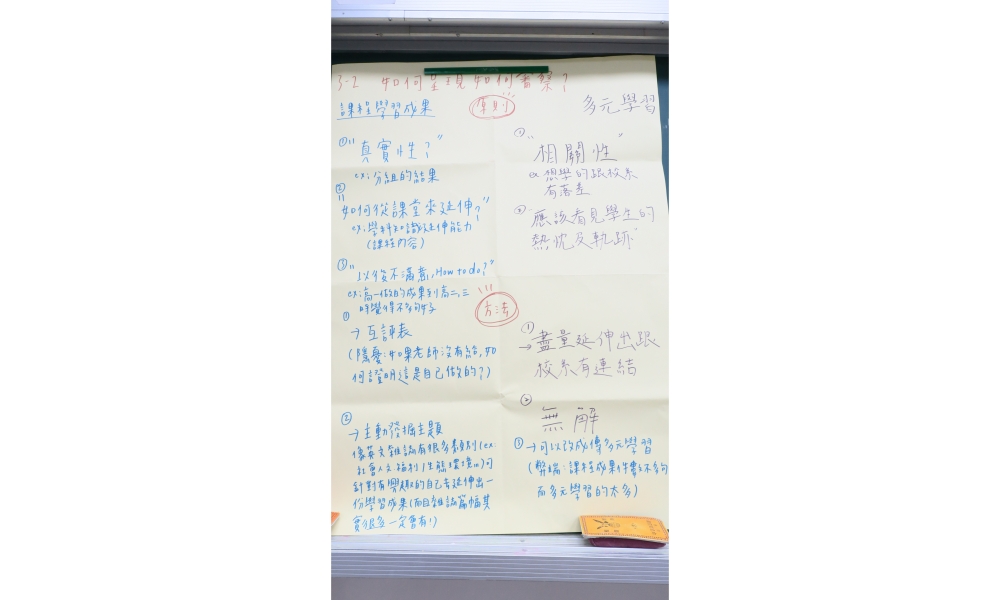 3-2 如何呈現如何審察?
課程學習成果
準則
多元學習
① "真實性?"
ex:分組的結果
②
"如何從課堂來延伸?"
ex:學科知識延伸能力
(課程內容)
③ "以後不滿意,How to do?"
ex:高一做的成果到高二、三
時覺得不夠好
① "相關性"
ex 想學的跟校系
有落差
② 應該看見學生的
熱忱及軌跡"
方法
①
→互評表
(隱憂:如果老師沒有給,如
何證明這是自己做的?)
②
→主動發掘主題
像英文雜誌有很多類別(ex:
社會人文福利/生態環境…)可
針對有興趣的自己去延伸出一
份學習成果(而且雜誌篇幅其
實很多一定會有!)
①
→盡量延伸出跟
校系有連結
②
無解
③→可以改成傳多元學習
(弊端:課程成果件數不多夠
而多元學習的太多)